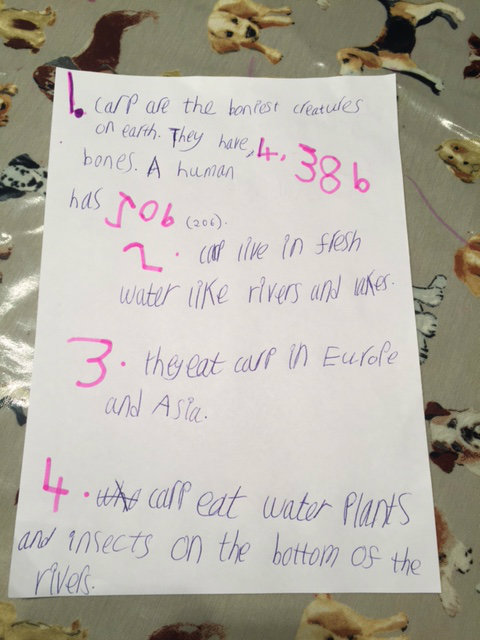 1. carp are the boniest creatures
on earth. They have 4,386
bones. A human
has 206 (206).
2. carp live in fresh
water like rivers and lakes.
3. they eat carp in Europe
and Asia.
4. carp eat water plants
and insects on the bottom of the
rivers.